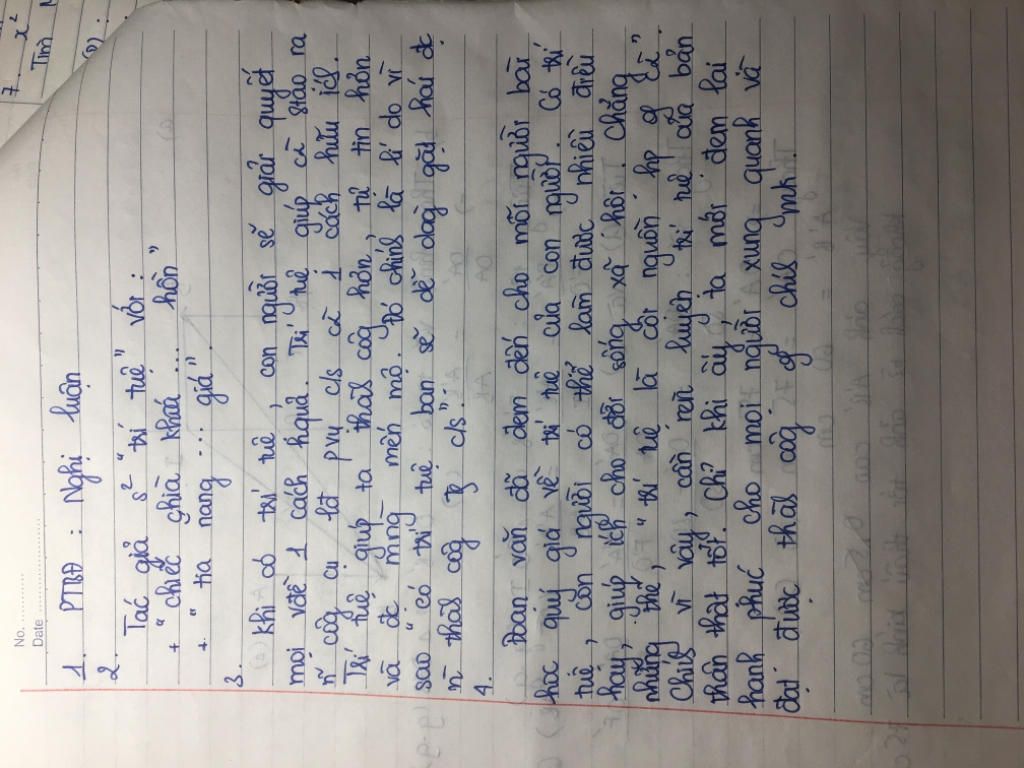 No.
Date
1. PTBĐ : Nghị luận
2.
Tác giả s² " trí tuệ " với :
+ " chiếc ghìa khoá ... hồn "
+ " tia nang ... giá ".
3.
Khi có trí tuệ, con người sẽ giải quyết
mọi vđề 1 cách hquả. Trí tuệ giúp ta stạo ra
n~ côg cụ tốt pvụ c/s 1 cách hữu ích.
Trí tuệ giúp ta thàh côg hơn, tự tin hơn
và đc mng mến mộ. Đó chính là lí do vì
sao " có trí tuệ bạn sẽ dễ dàng gặt hái đc
n~ thàh côg tg c/s ".
4.
Đoạn văn đã đem đến cho mỗi người bài
học quý giá về trí tuệ của con người. Có trí
tuệ, con người có thể làm được nhiều điều
hay, giúp ích cho đời sống xã hội. Chẳng
những thế, " trí tuệ là cội nguồn hp g đ "
Chính vì vậy, cần rèn luyện trí tuệ của bản
thân thật tốt. Chỉ khi ấy, ta mới đem lại
hạnh phúc cho mọi người xung quanh và
đạt được thàh côg của chíh mh.
7. x²
Tìm